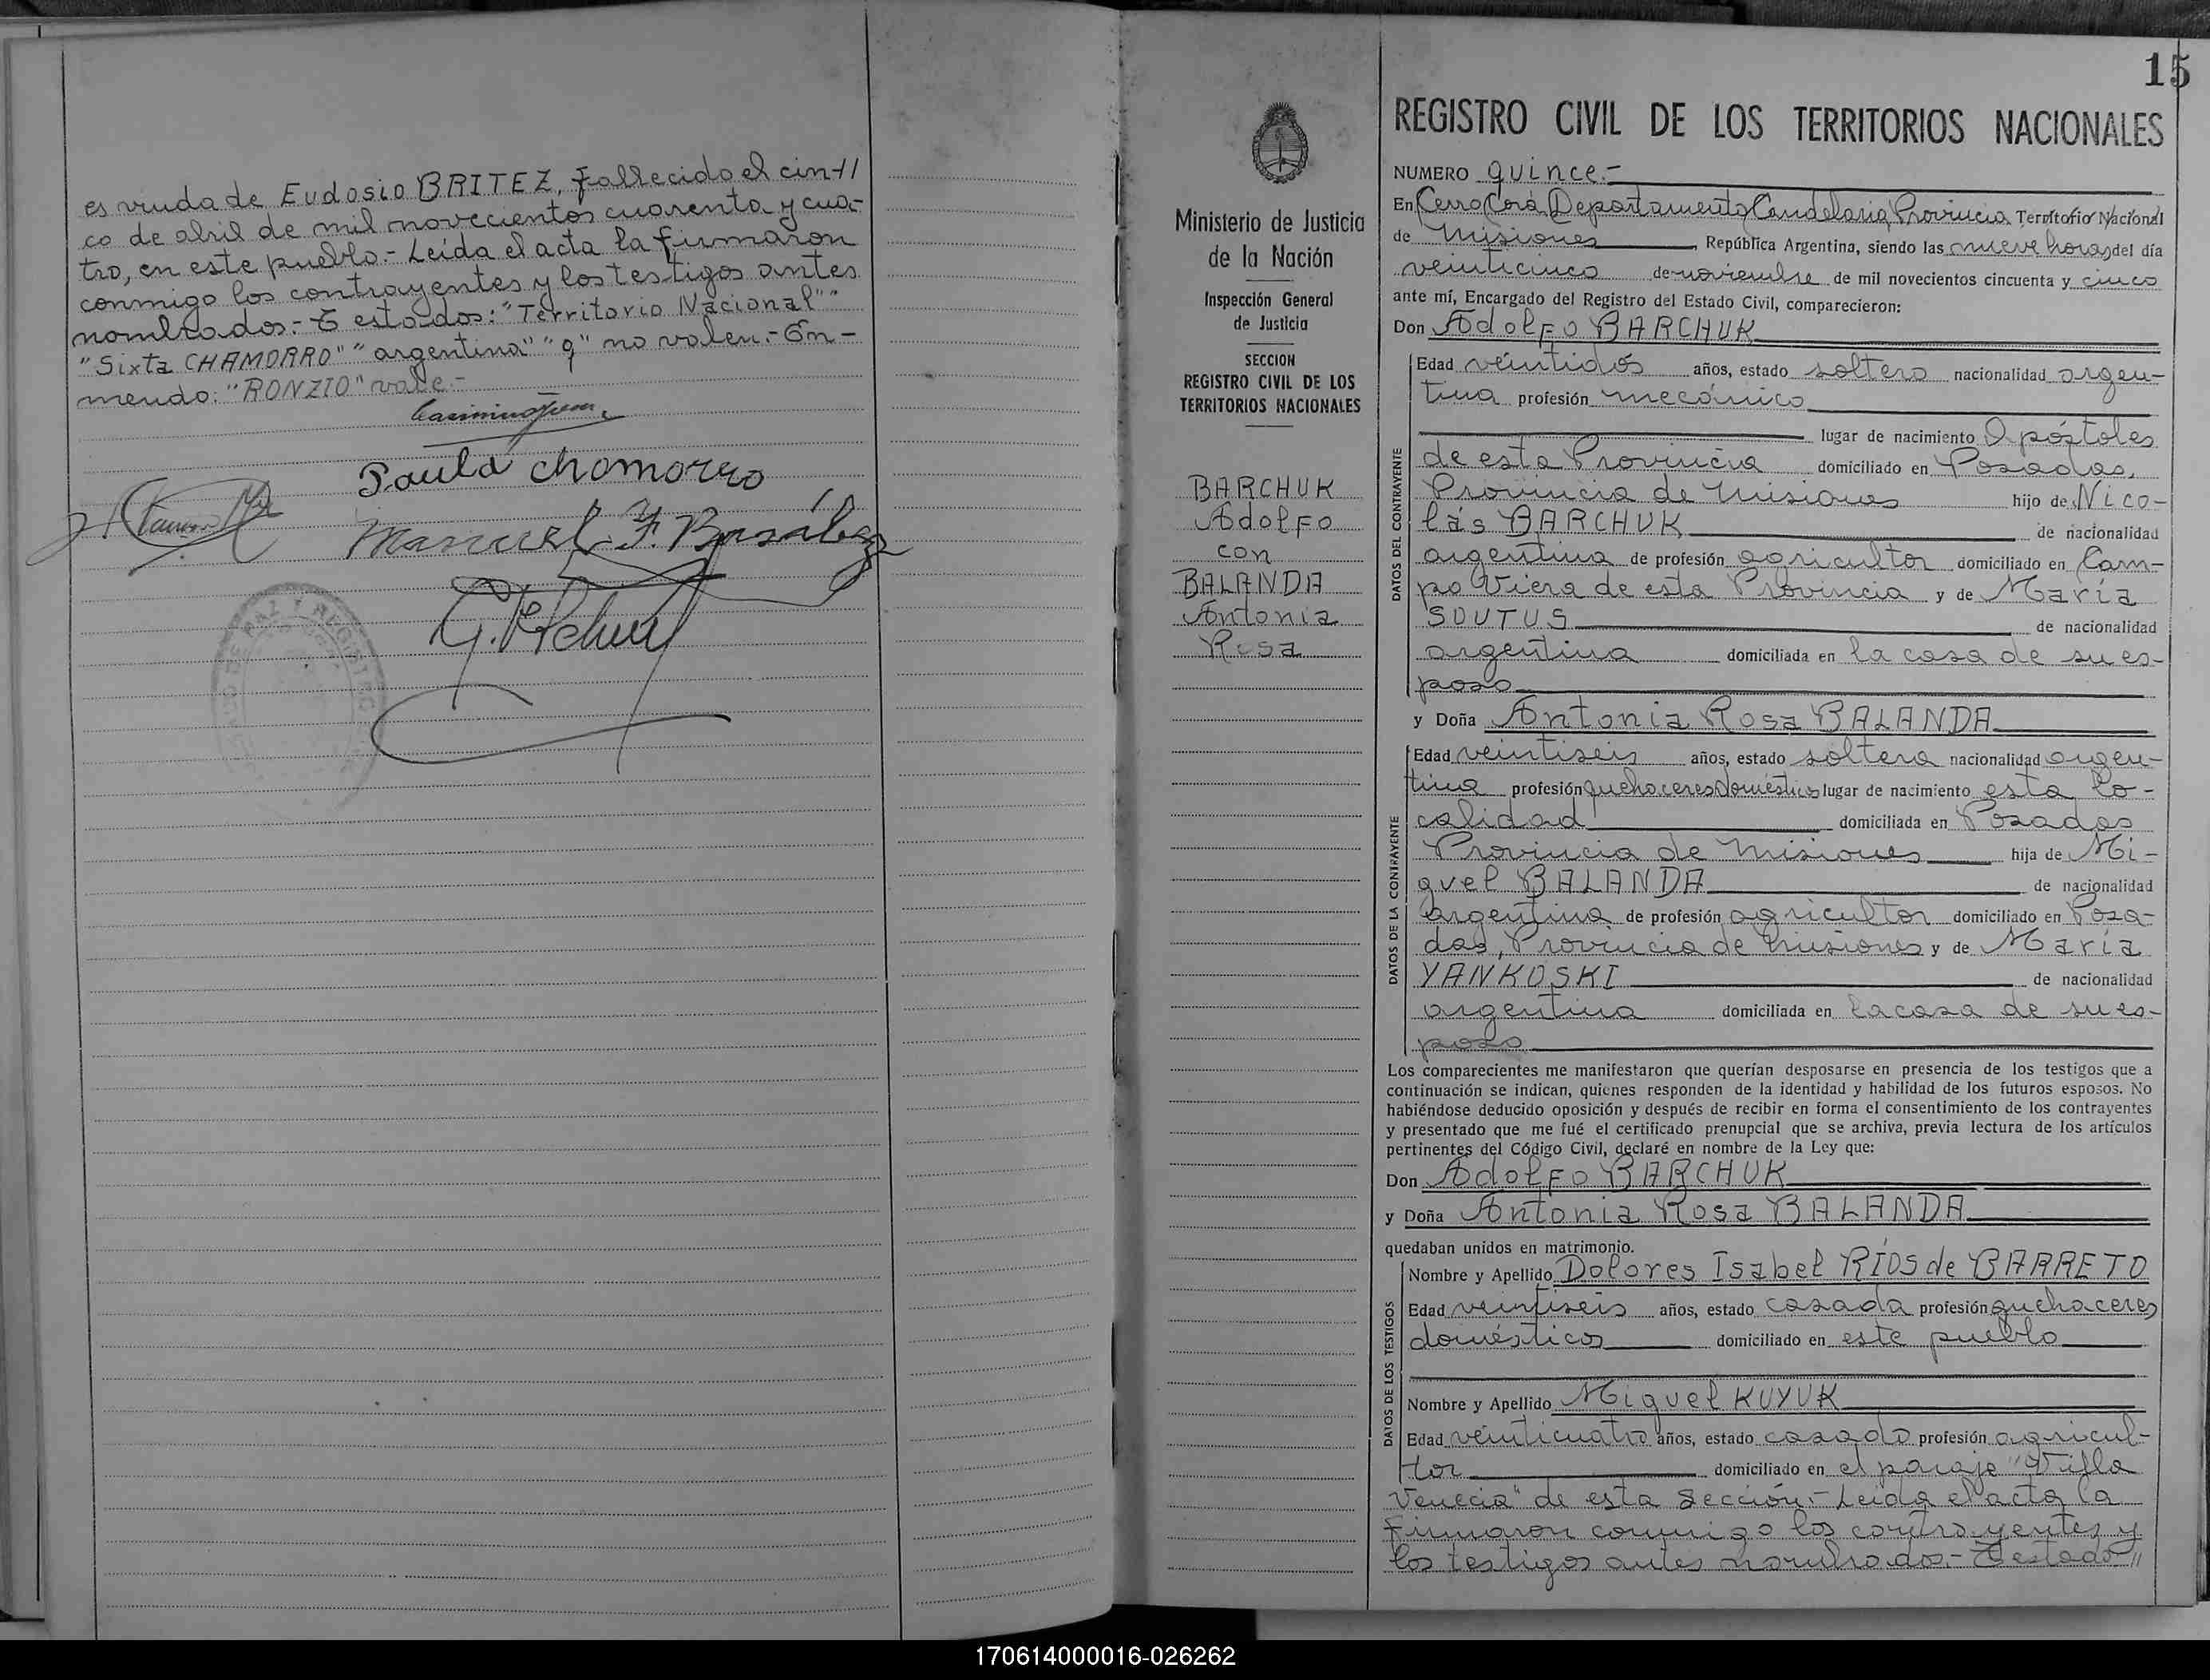 es viuda de Eudosio BRITEZ, fallecido el cin-//
co de abril de mil novecientos cuarenta y cua-
tro, en este pueblo.- Leída el acta la firmaron
conmigo los contrayentes y los testigos antes
nombrados.- Testados: "Territorio Nacional" "
"Sixta CHAMORRO" "argentina" "q" no valen.- En-
mendo: "RONZIO" vale.-
Paula Chamorro
Manuel F.
15
REGISTRO CIVIL DE LOS TERRITORIOS NACIONALES
NUMERO quince.-
En Cerro Corá, Departamento Candelaria, Provincia Territorio Nacional
de Misiones, República Argentina, siendo las nueve horas del día
veinticinco de noviembre de mil novecientos cincuenta y cinco
ante mí, Encargado del Registro del Estado Civil, comparecieron:
Don Adolfo BARCHUK
Edad veintidós años, estado soltero nacionalidad argen-
tina profesión mecánico
lugar de nacimiento Apóstoles
de esta Provincia domiciliado en Posadas,
Provincia de Misiones hijo de Nico-
lás BARCHUK de nacionalidad
argentina de profesión agricultor domiciliado en Cam-
po Viera de esta Provincia y de María
SOUTUS de nacionalidad
argentina domiciliada en la casa de su es-
poso
DATOS DEL CONTRAYENTE
y Doña Antonia Rosa BALANDA
Edad veintiseis años, estado soltera nacionalidad argen-
tina profesión quehaceres domésticos lugar de nacimiento esta lo-
calidad domiciliada en Posadas
Provincia de Misiones hija de Mi-
guel BALANDA de nacionalidad
argentina de profesión agricultor domiciliado en Posa-
das, Provincia de Misiones y de María
YANKOSKI de nacionalidad
argentina domiciliada en la casa de su es-
poso
DATOS DE LA CONTRAYENTE
Los comparecientes me manifestaron que querían desposarse en presencia de los testigos que a
continuación se indican, quienes responden de la identidad y habilidad de los futuros esposos. No
habiéndose deducido oposición y después de recibir en forma el consentimiento de los contrayentes
y presentado que me fué el certificado prenupcial que se archiva, previa lectura de los artículos
pertinentes del Código Civil, declaré en nombre de la Ley que:
Don Adolfo BARCHUK
y Doña Antonia Rosa BALANDA
quedaban unidos en matrimonio.
Nombre y Apellido Dolores Isabel RÍOS de BARRETO
Edad veintiseis años, estado casada profesión quehaceres
domésticos domiciliado en este pueblo
Nombre y Apellido Miguel KUYUK
Edad veinticuatro años, estado casado profesión agricul-
tor domiciliado en el paraje "Villa
Venecia" de esta Sección.- Leída el acta la
firmaron conmigo los contrayentes y
los testigos antes nombrados.- Testado "
DATOS DE LOS TESTIGOS
Ministerio de Justicia
de la Nación
Inspección General
de Justicia
SECCION
REGISTRO CIVIL DE LOS
TERRITORIOS NACIONALES
BARCHUK
Adolfo
con
BALANDA
Antonia
Rosa
170614000016-026262